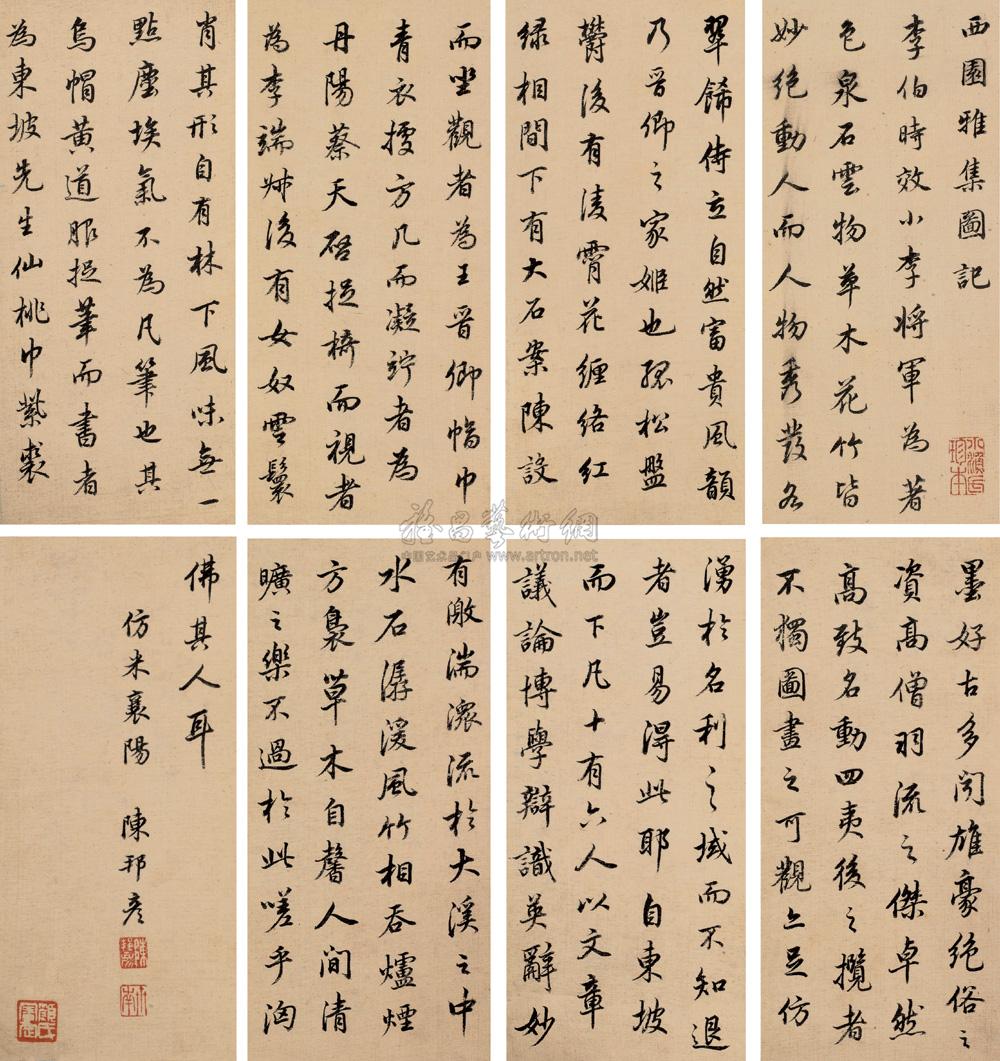 西園雅集圖記
李伯時效小李將軍為著
色泉石雲物草木花竹皆
妙絕動人而人物秀發各
肖其形自有林下風味無一
點塵埃氣不為凡筆也其
烏帽黃道服捉筆而書者
為東坡先生仙桃巾紫裘
而坐觀者為王晉卿幅巾
青衣擭方几而凝竚者為
丹陽蔡天啓捉椅而視者
為李端叔後有女奴雲鬟
翠餙侍立自然富貴風韻
乃晉卿之家姬也孤松盤
鬱後有淩霄花纏絡紅
綠相間下有大石案陳設
有激湍潀流於大溪之中
水石潺湲風竹相吞爐煙
方裊草木自馨人間清
曠之樂不過於此嗟乎洶
湧於名利之域而不知退
者豈易得此耶自東坡
而下凡十有六人以文章
議論博學辯識英辭妙
墨好古多聞雄豪絕俗之
資高僧羽流之傑卓然
高致名動四夷後之攬者
不獨圖畫之可觀亦足仿
佛其人耳
仿米襄陽 陳邦彥
雅昌藝術網
中国艺术品门户 www.artron.net